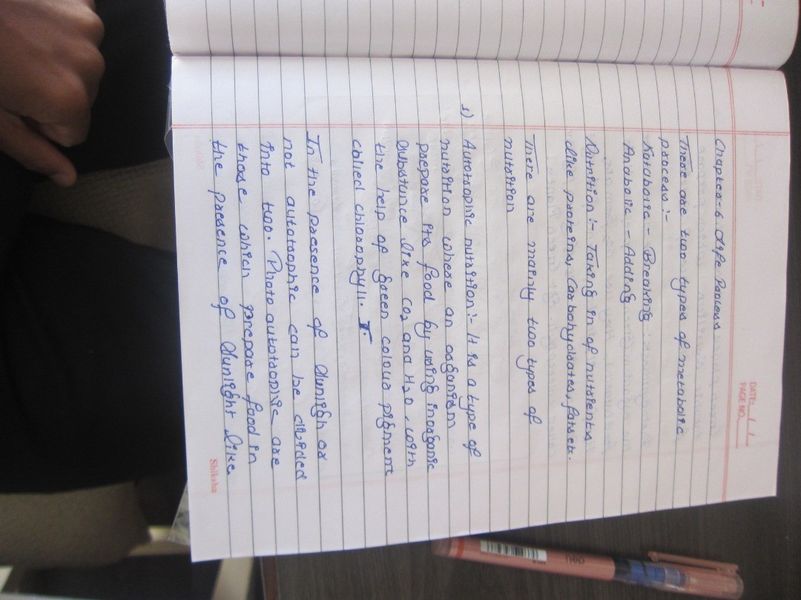 DATE: / /
PAGE NO.
Chapter-6 Life Process
There are two types of metabolic
process:-
Katabolic - Breaking
Anabolic - Adding
Nutrition:- Taking in of nutrients
like proteins, Carbohydrates, fats etc.
There are mainly two types of
nutrition
1) Autotrophic nutrition:- It is a type of
nutrition where an organism
prepare its food by using inorganic
Substance like CO2 and H2O, with
the help of green colour pigment
called chlorophyll.
In the presence of Sunligh or
not autotrophic can be divided
into two. Photo autotrophic are
those which prepare food in
the presence of Sunlight like
Shiksha